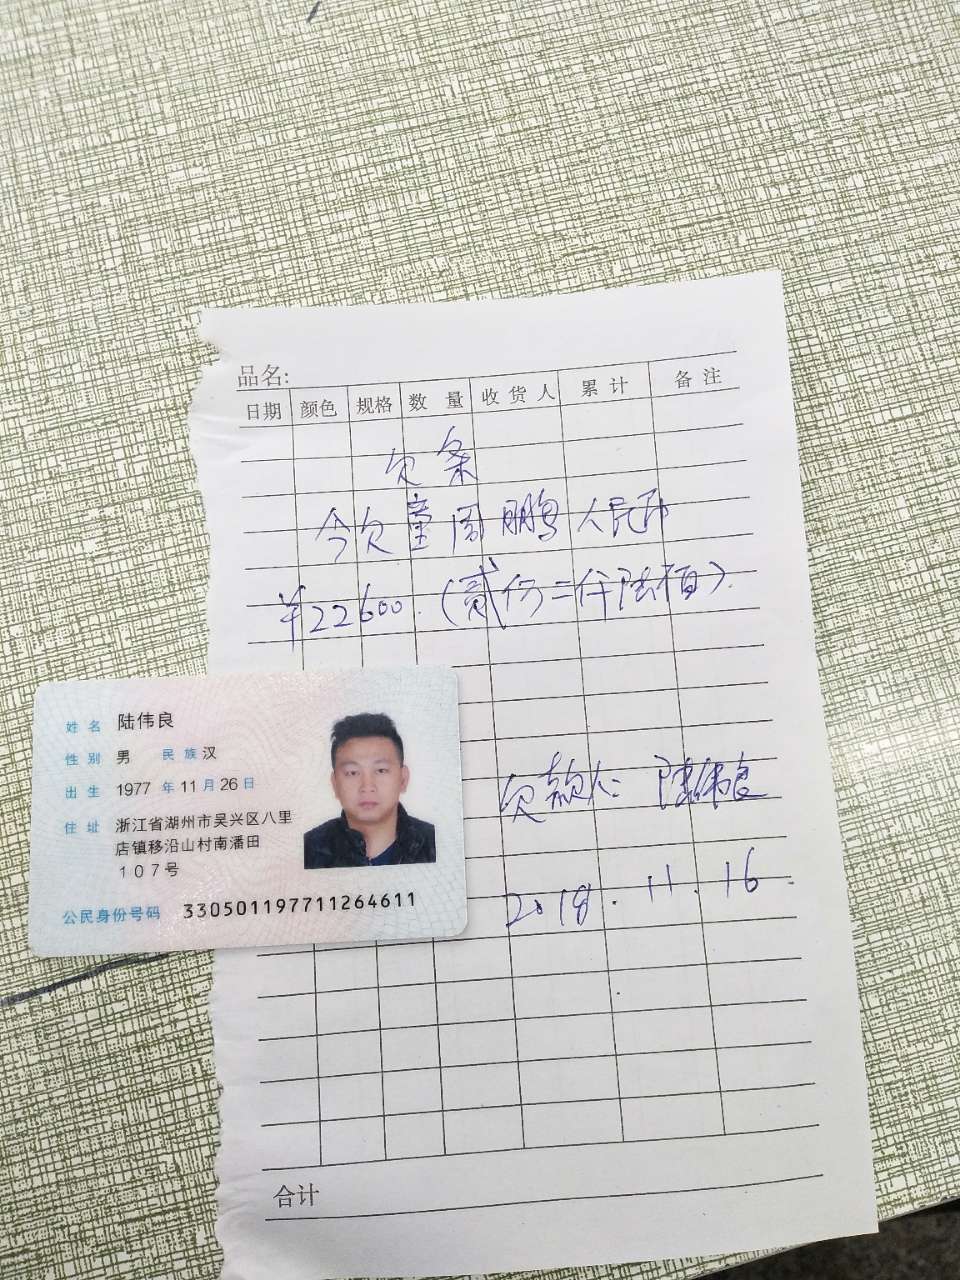 品名:
日期 颜色 规格 数量 收货人 累计 备注
欠条
今欠童周鹏人民币
¥22600.(贰仂二仟陆佰).
欠款人: 陆伟良
2018.11.16.
合计
姓名 陆伟良
性别 男 民族 汉
出生 1977年11月26日
住址 浙江省湖州市吴兴区八里
店镇移沿山村南潘田
107号
公民身份号码 330501197711264611